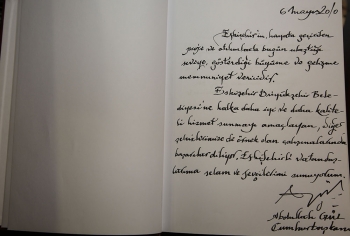 6 Mayıs 2010
Eskişehir'in, hayata geçirilen
proje ve atılımlarla bugün ulaştığı
seviye, gösterdiği büyüme ve gelişme
memnuniyet vericidir.
Eskişehir Büyükşehir Bele-
diyesi'ne halka daha iyi ve daha kalite-
li hizmet sunmayı amaçlayan, diğer
şehirlerimize de örnek olan çalışmalarında
başarılar diliyor, Eskişehirli vatandaş-
larıma selam ve sevgilerimi sunuyorum.
Abdullah Gül
Cumhurbaşkanı